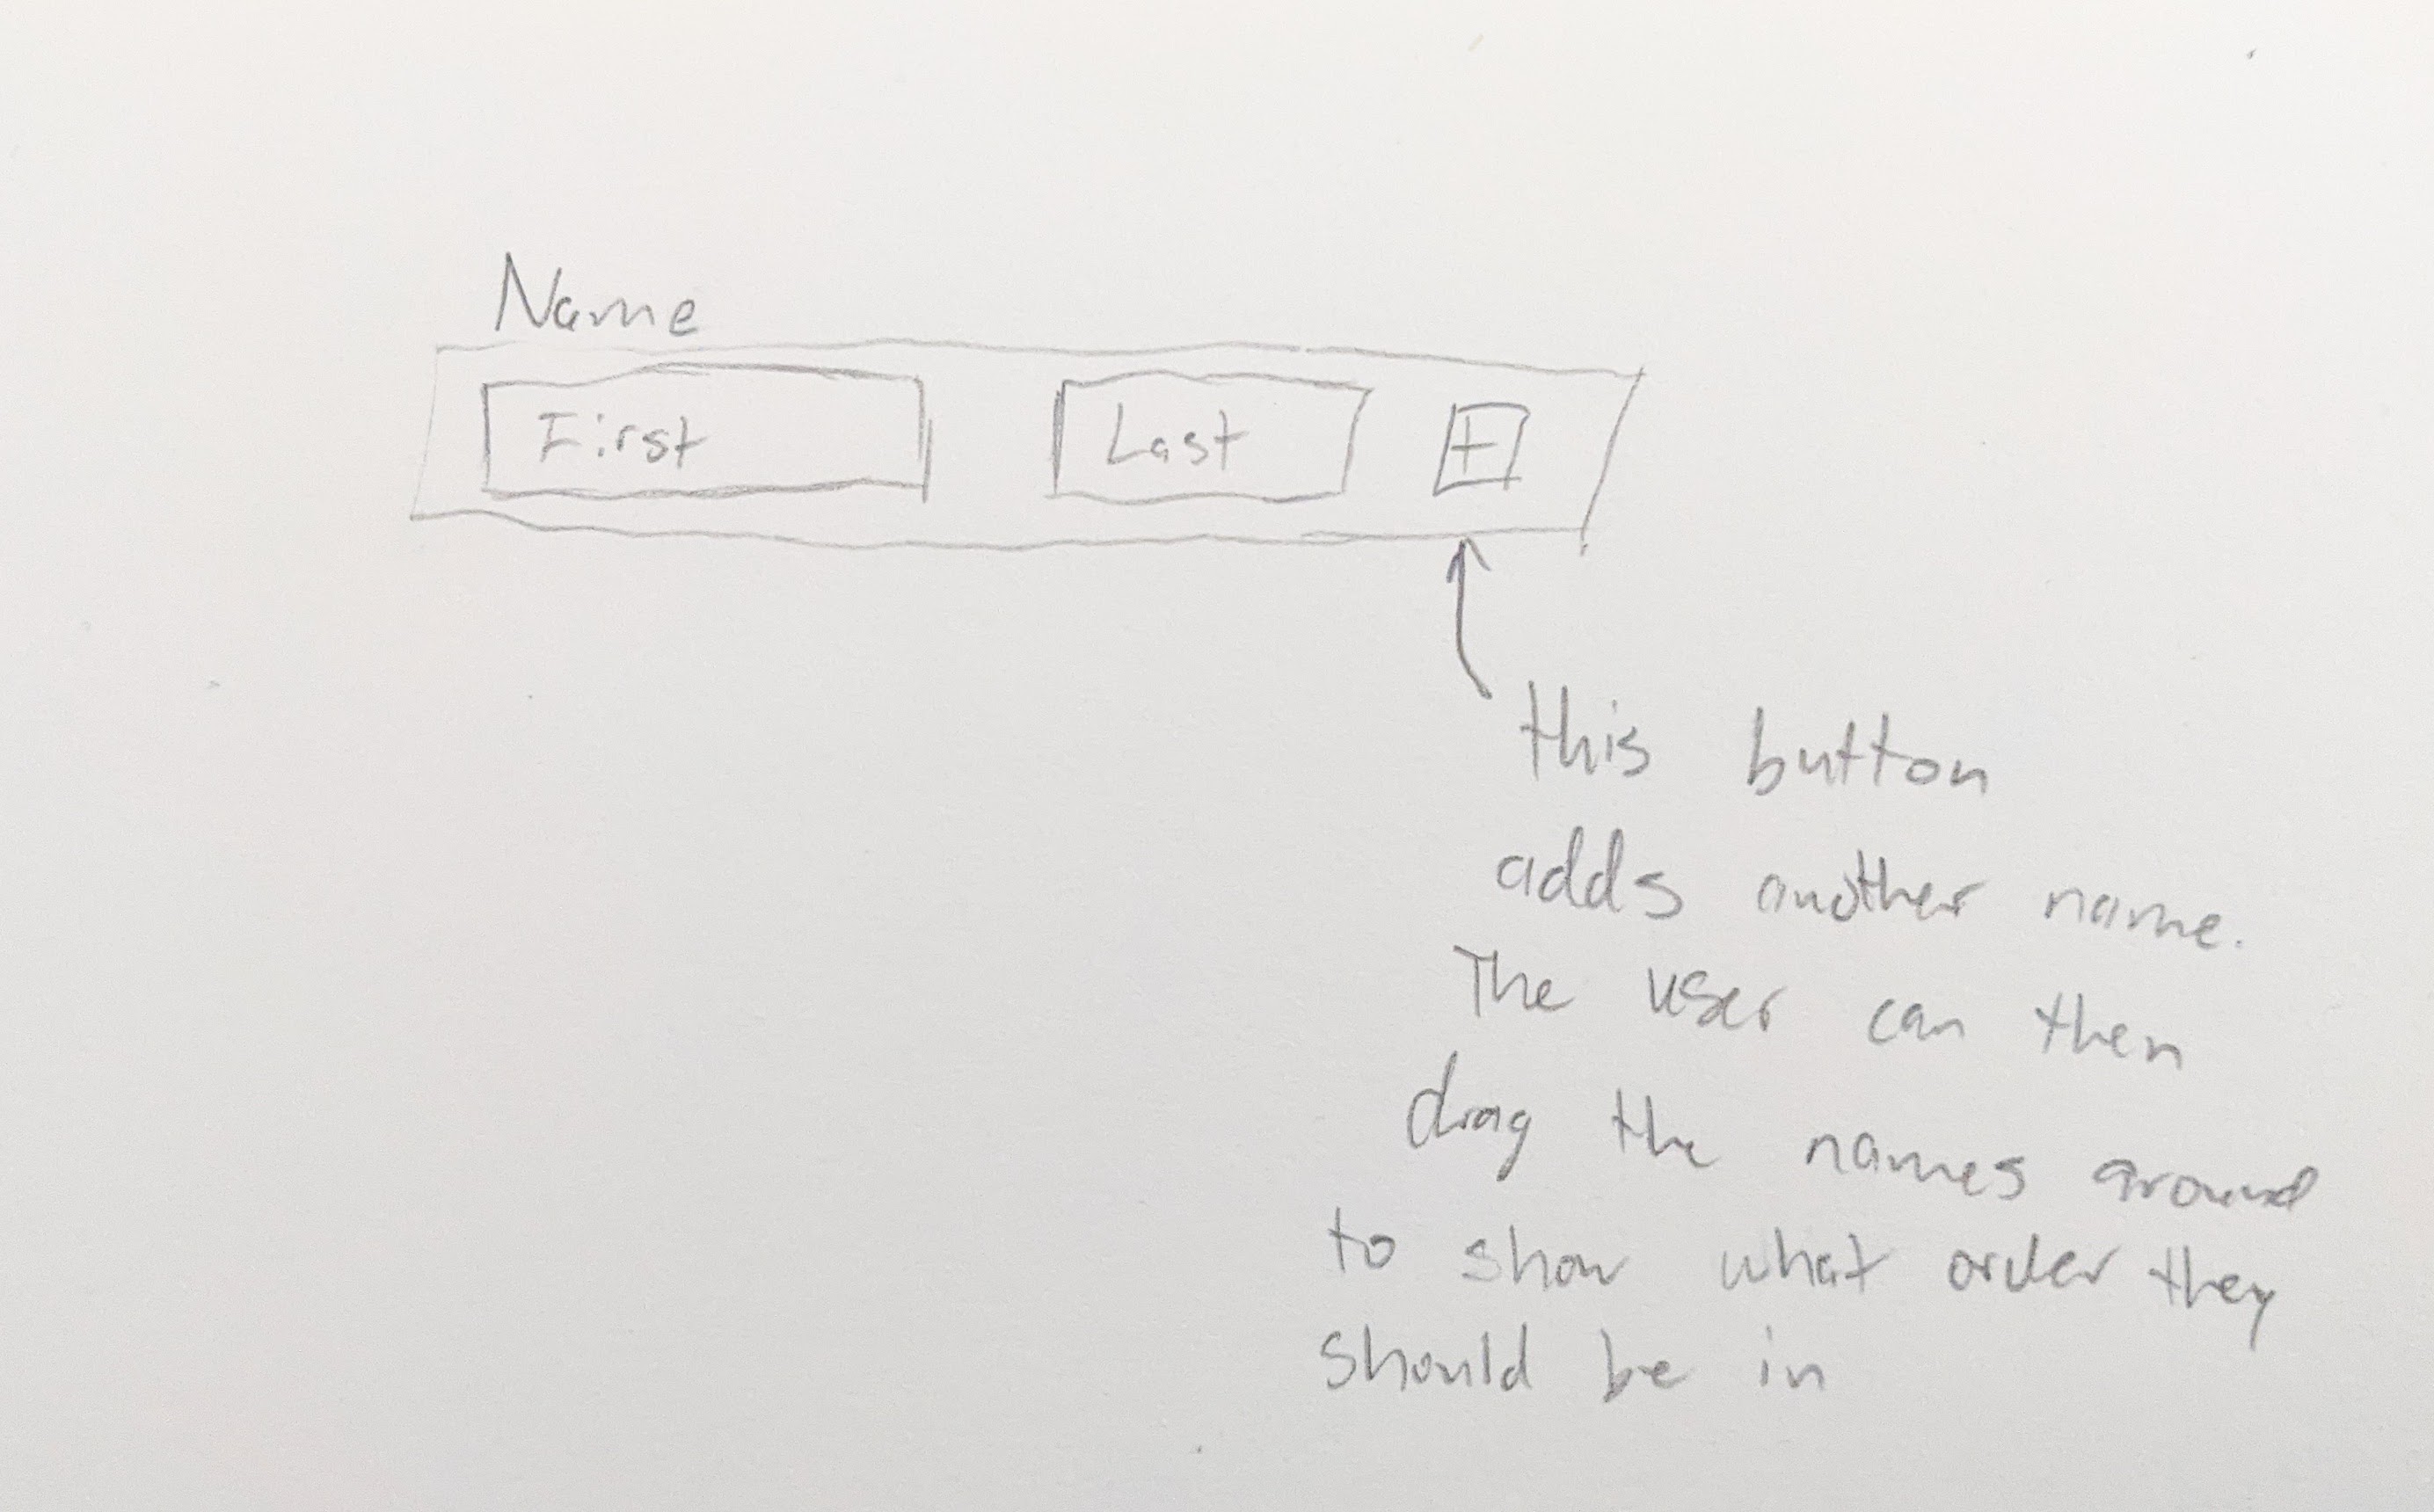 Name
First Last +
this button
adds another name.
The user can then
drag the names around
to show what order they
should be in